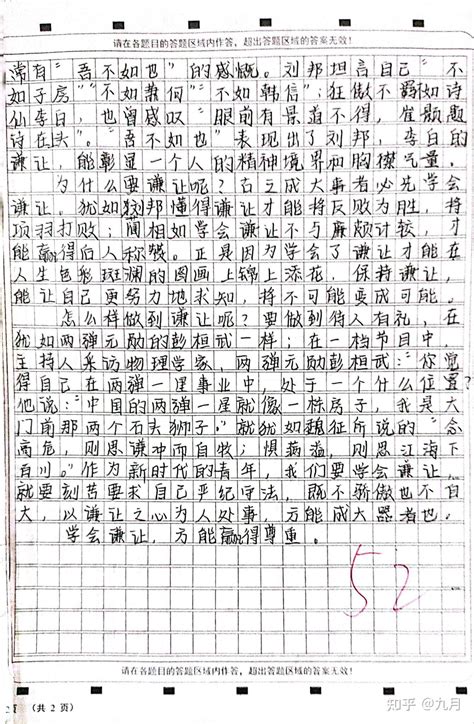 请在各题目的答题区域内作答，超出答题区域的答案无效！
常有“吾不如也”的感慨。刘邦坦言自己“不
如子房”“不如萧何”“不如韩信”；狂傲不羁如诗
仙李白，也曾感叹“眼前有景道不得，崔颢题
诗在头”。“吾不如也”表现出了刘邦，李白的
谦让，能彰显一个人的精神境界和胸襟气量。
为什么要谦让呢？古之成大事者必先学会
谦让。犹如刘邦懂得谦让才能将反败为胜，将
项羽打败；蔺相如学会谦让不与廉颇计较，才
能赢得后人称赞。正是因为学会了谦让才能在
人生色彩斑斓的图画上锦上添花，保持谦让，
能让自己更努力地求知，将不可能变成可能。
怎么样做到谦让呢？要做到待人有礼，在
犹如两弹元勋的彭桓武一样；在一档节目中，
主持人采访物理学家，两弹元勋彭桓武：“你觉
得自己在两弹一星事业中，处于一个什么位置？”
他说：“中国的两弹一星就像一栋房子，我是大
门前那两个石头狮子。”就犹如魏征所说的“念
高危，则思谦冲而自牧；惧满溢，则思江海下
百川。”作为新时代的青年，我们要学会谦让，
就要刻苦要求自己严纪守法，既不骄傲也不自
大，以谦让之心为人处事，方能成大器者也。
学会谦让，方能赢得尊重。
52
请在各题目的答题区域内作答，超出答题区域的答案无效！
（共 2 页）
知乎 @九月